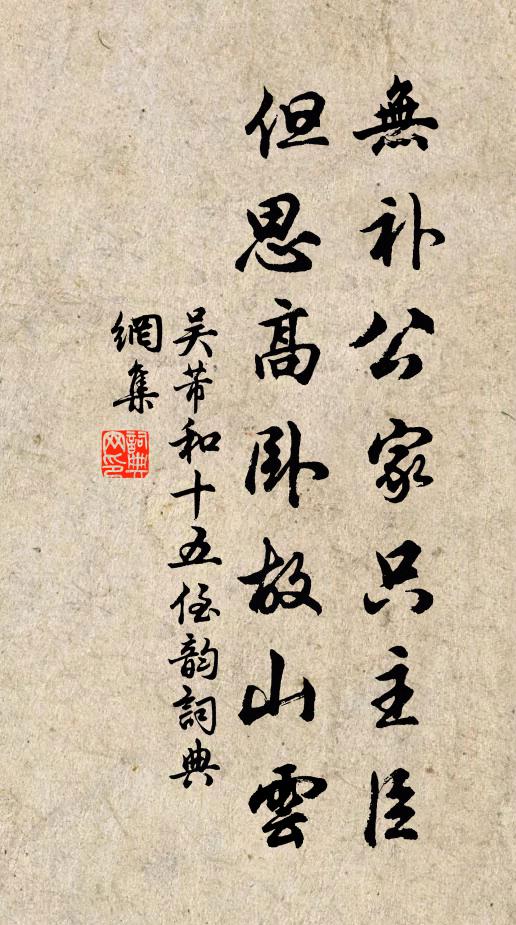 無补公家只主臣
但思高卧故山雲
吴芾和十五侄韵詞典
網集
詞典
网印